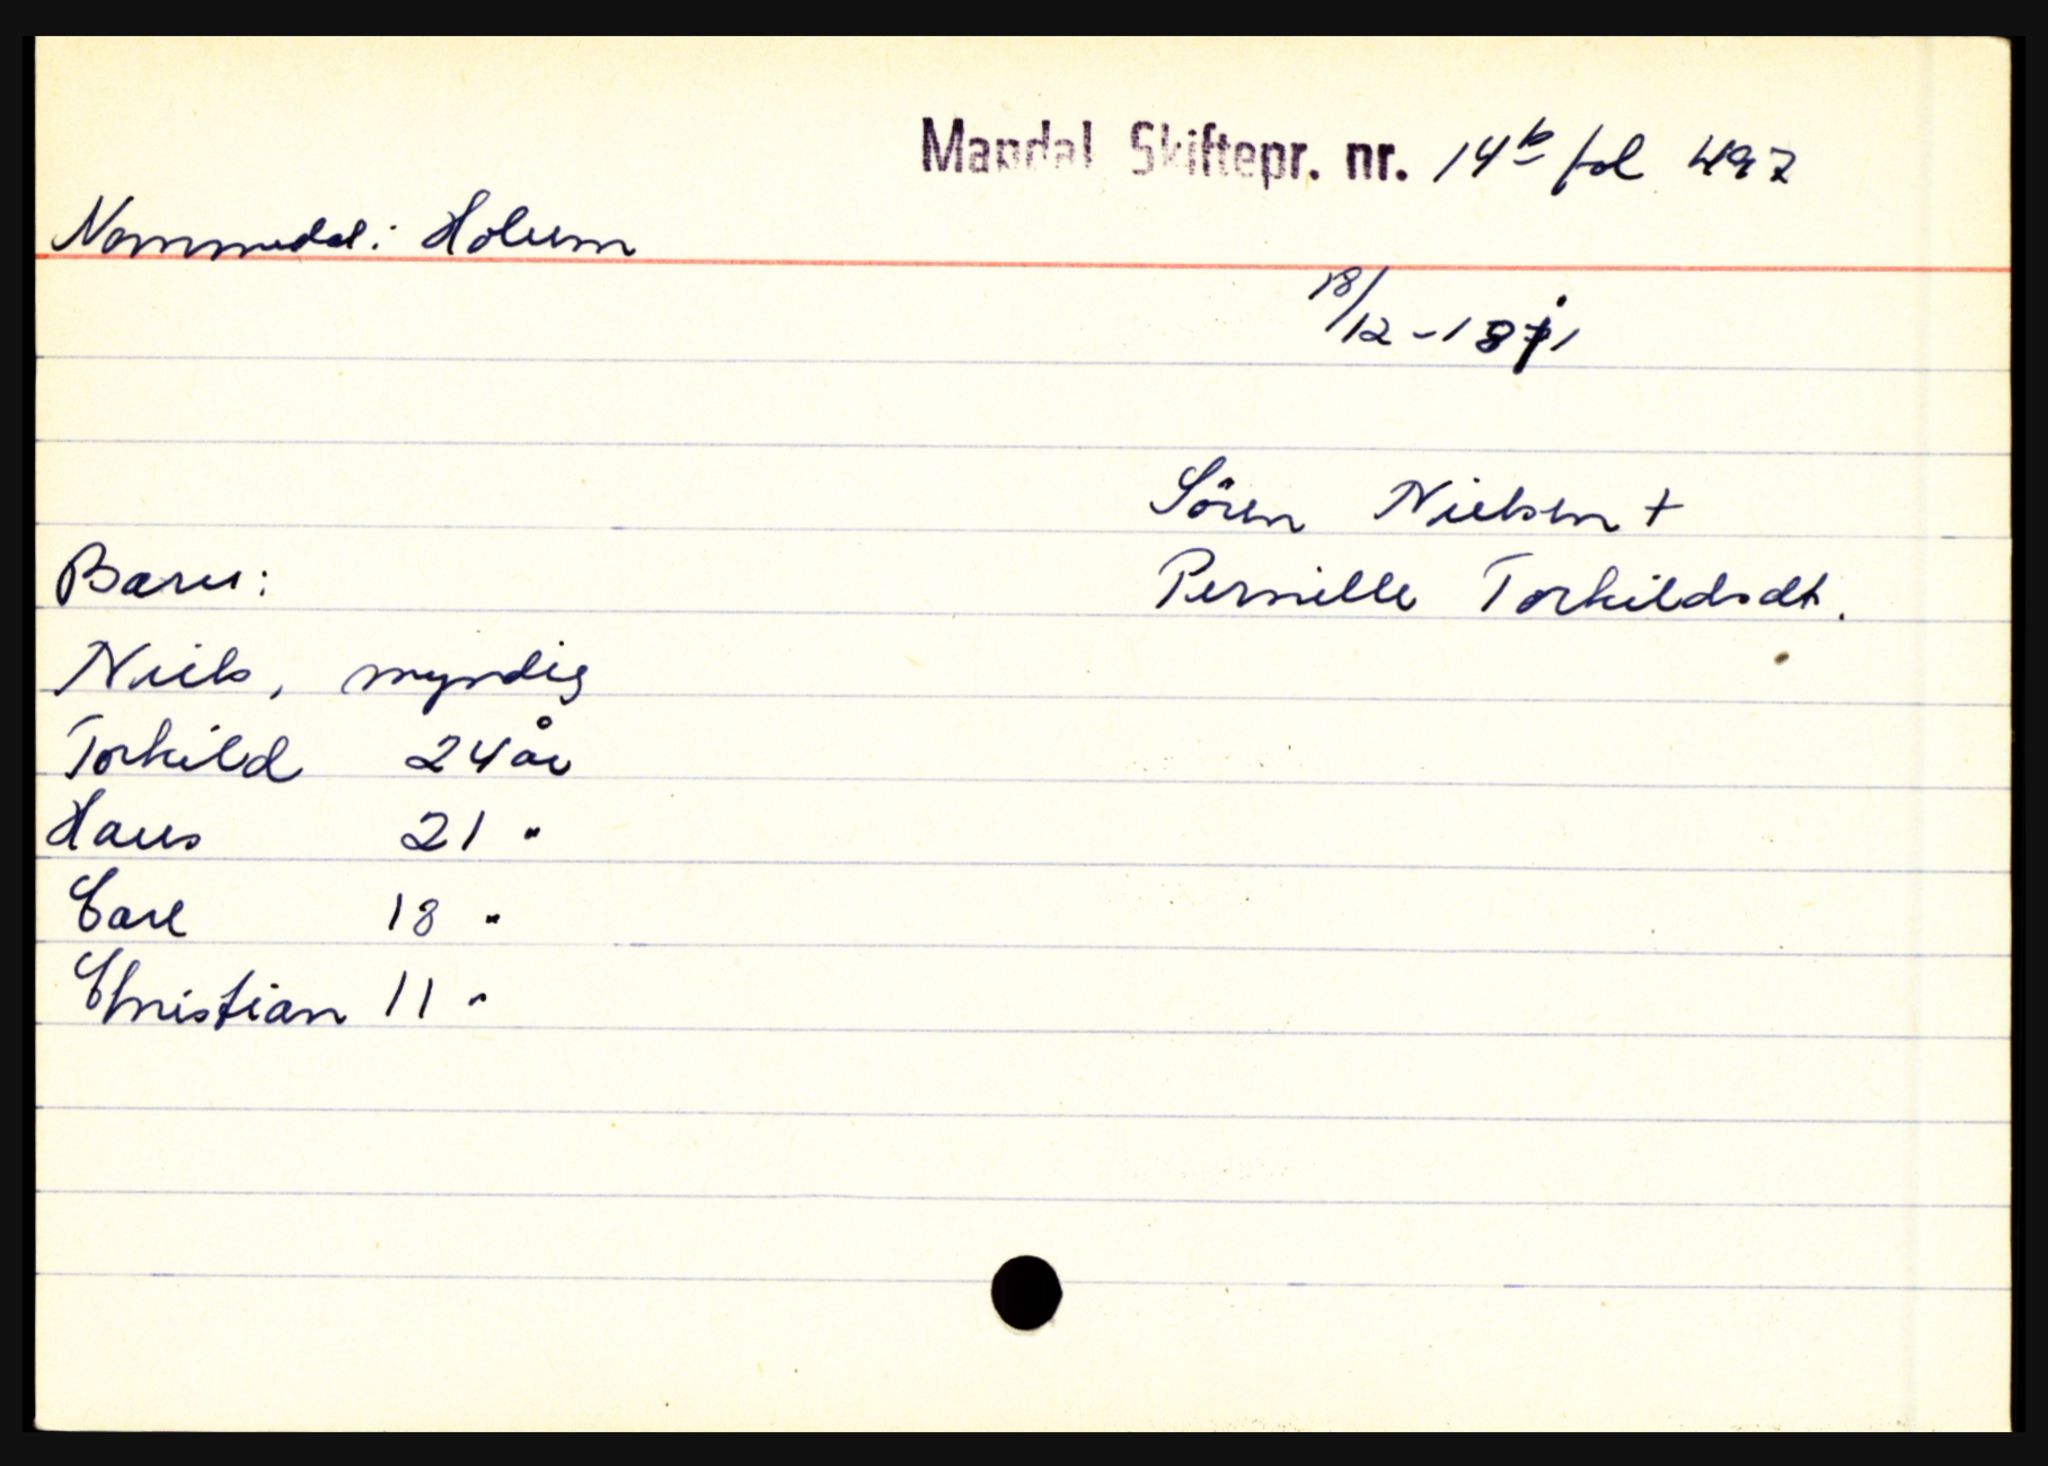 Mandal Skiftepr. nr. 14b fol 497
Nommedal: Holum
18/12-1871
Sören Nielsen +
Barn:
Pernille Torkildsdt.
Niels, myndig
Torkild 24 år
Hans 21 "
Carl 18 "
Christian 11 "